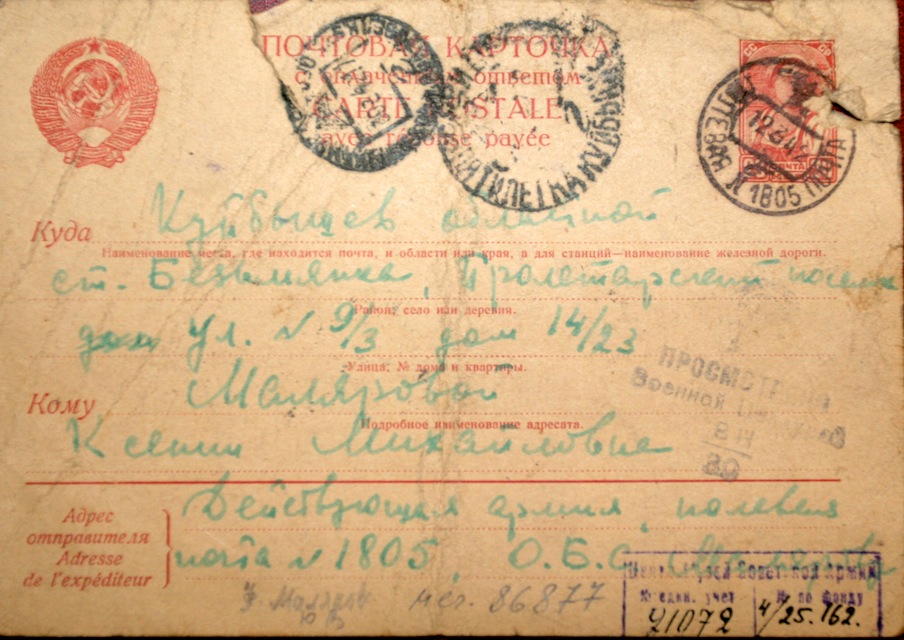 ПОЧТОВАЯ КАРТОЧКА
с оплаченным ответом
CARTE POSTALE
avec réponse payée
СС СР
ПОЧТА
1805
ПЯТИЛЕТКА КУЙБЫШ
Куда Куйбышев областной
Наименование места, где находится почта, и области или края, а для станций—наименование железной дороги.
ст. Безымянка, Пролетарский поселок
Район, село или деревня.
ул. N 9/3 дом 14/23
Улица, № дома и квартиры.
ПРОСМОТРЕНО
Военной Цензурой
Кому Маляровой
Подробное наименование адресата.
Ксении Михайловне
Адрес отправителя
Adresse de l'expéditeur
Действующая армия, полевая
почта N 1805, О.Б.С.
Мсг. 86877
Центр. Музей Совет. кой Армии
№ един. учет № по фонду
21072 4/25.162.